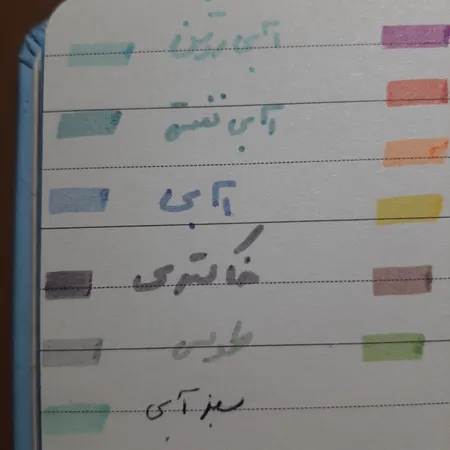 آبی
آبی نفتی
آبی
خاکستری
طوسی
سبز آبی